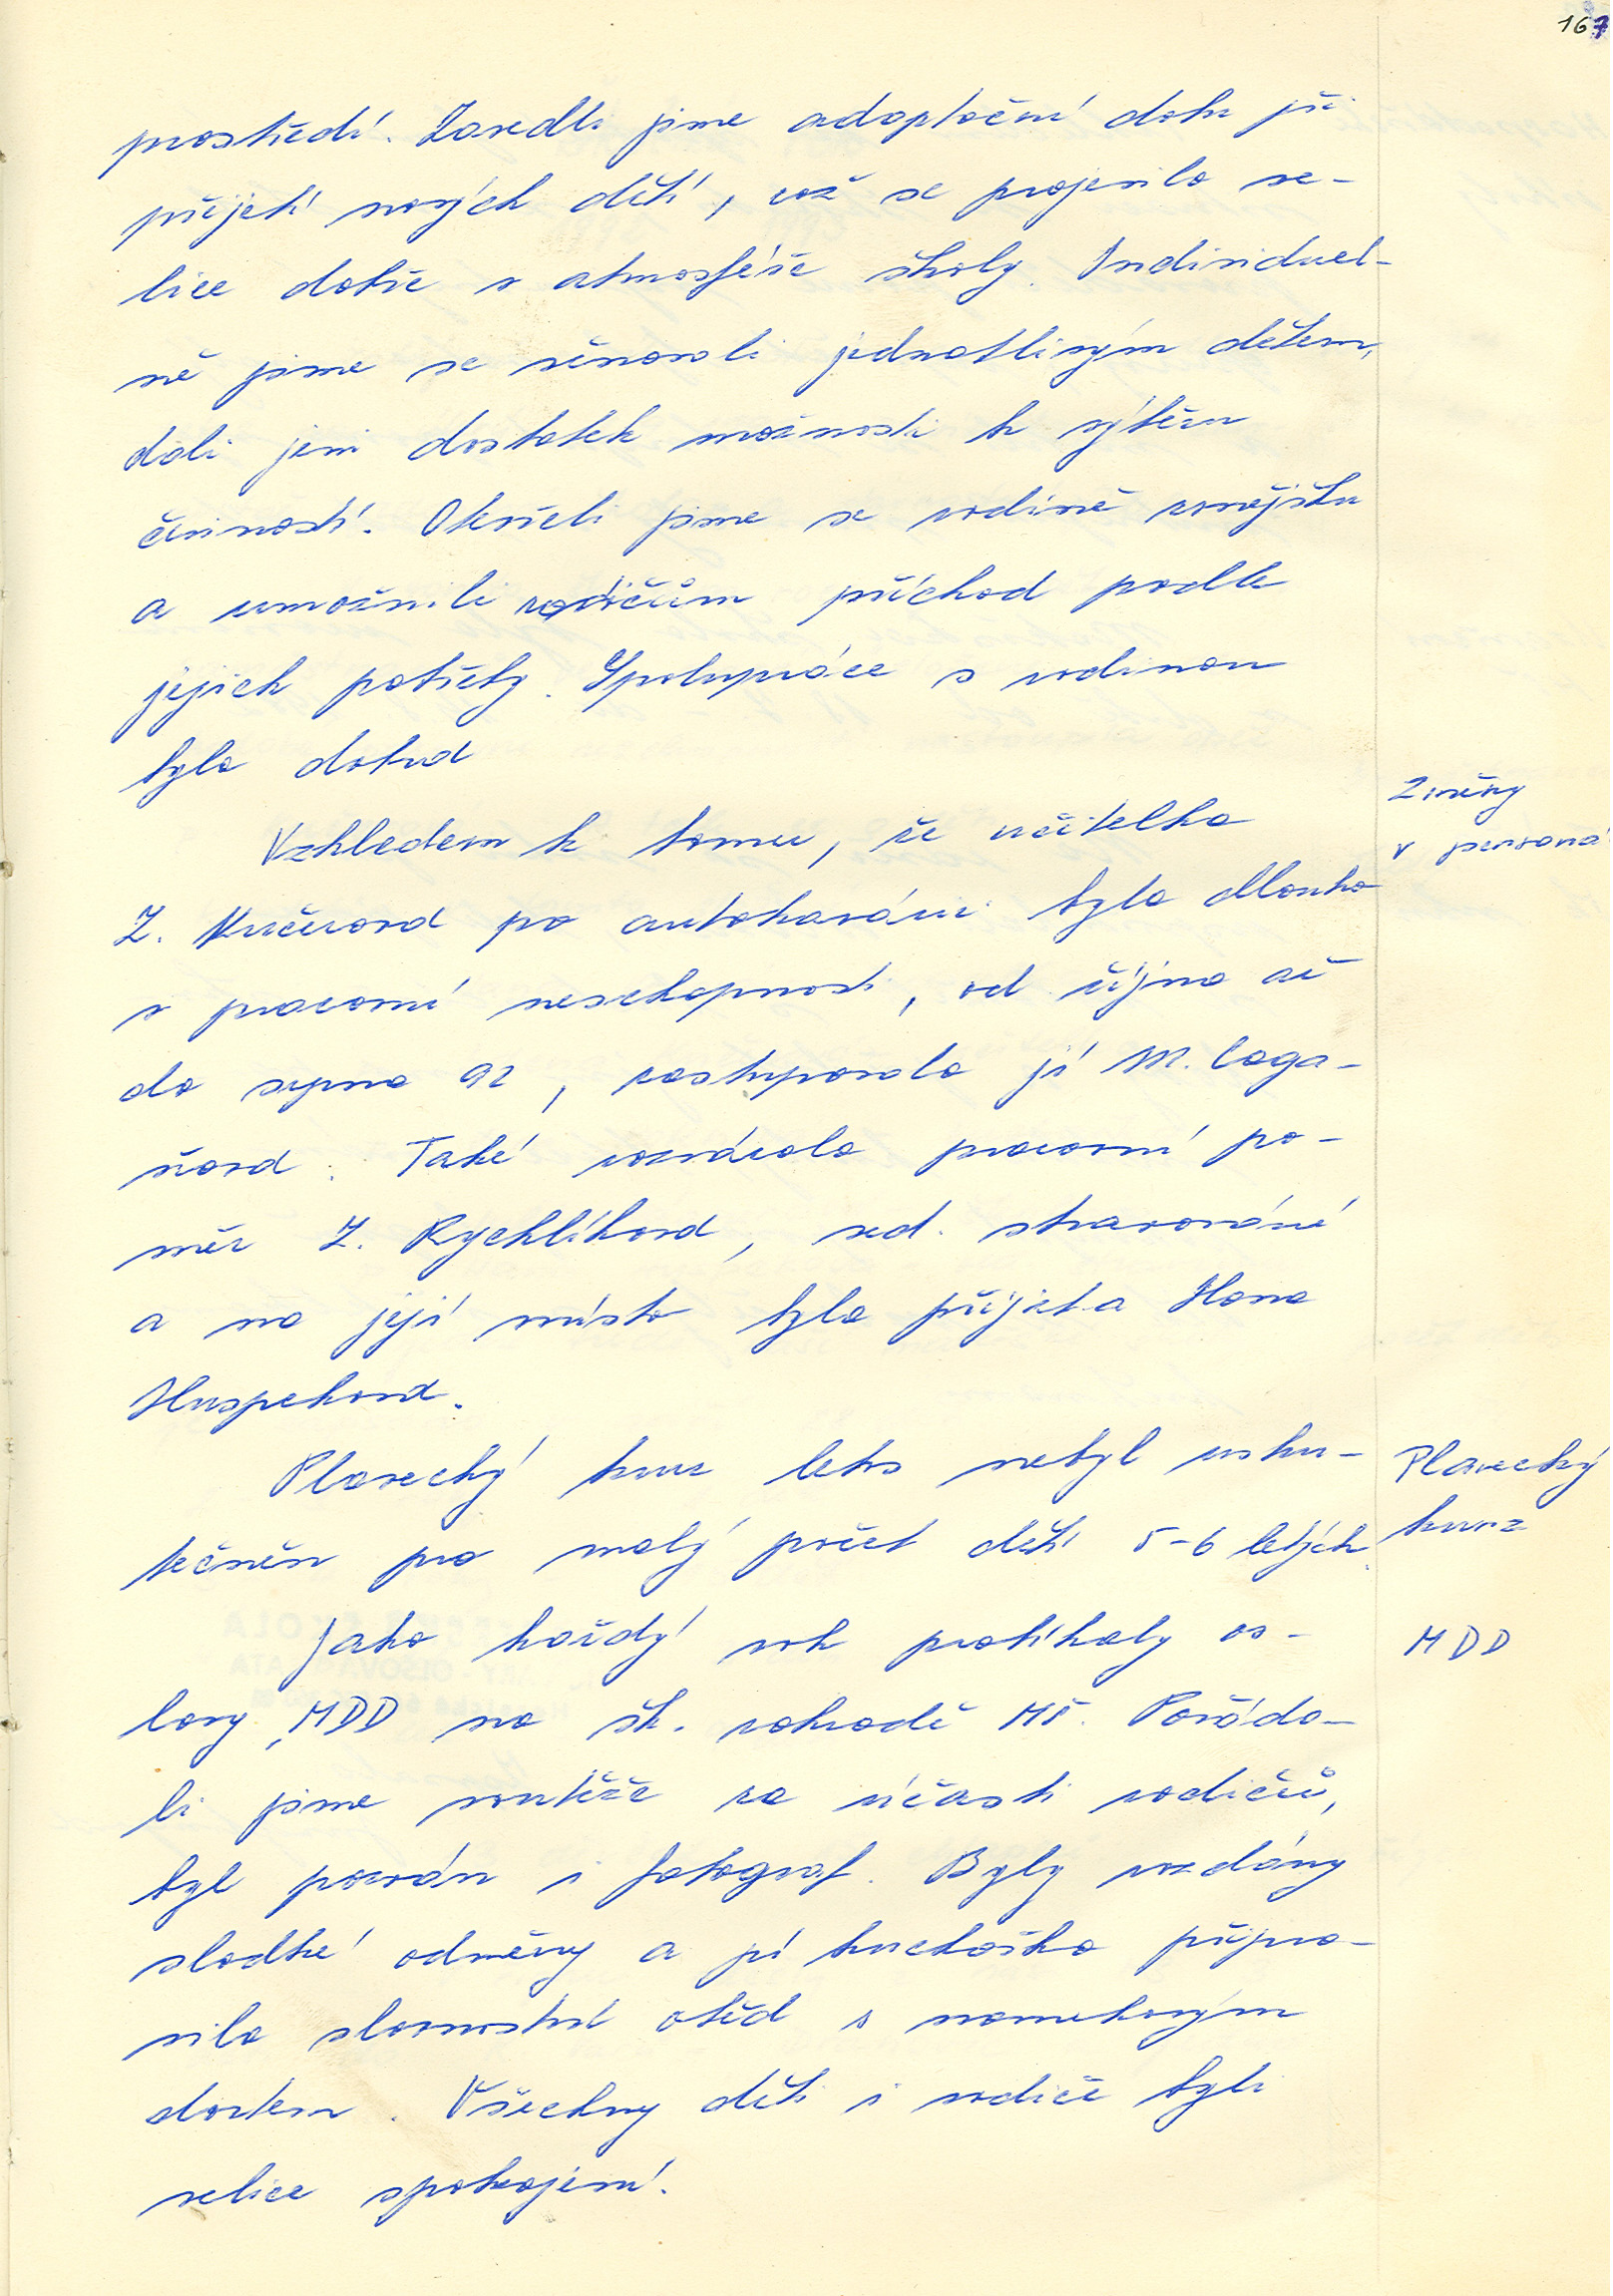 167
prostředí. Zavedli jsme adaptační dobu při
přijetí nových dětí, což se projevilo ve-
lice dobře v atmosféře školy. Individuel-
ně jsme se věnovali jednotlivým dětem,
dali jim dostatek možnosti k výběru
činností. Otevřeli jsme se rodině zvnějšku
a umožnili rodičům příchod podle
jejich potřeby. Spolupráce s rodinou
byla dobrá
Změny
v personá
Vzhledem k tomu, že učitelka
Z. Kučerová po autohavárii byla dlouho
v pracovní neschopnosti, od října až
do srpna 92, zastupovala jí M. Caga-
ňová. Také rozvázala pracovní po-
měr Z. Rychlíková, ved. stravování
a na její místo byla přijata Hana
Huspeková.
Plavecký
kurz
Plavecký kurz letos nebyl usku-
tečněn pro malý počet dětí 5-6 letých.
MDD
Jako každý rok probíhaly os-
lavy MDD na šk. zahradě MŠ. Pořáda-
li jsme soutěže za účasti rodičů,
byl pozván i fotograf. Byly rozdány
sladké odměny a pí kuchařka připra-
vila slavnostní oběd s nanukovým
dortem. Všechny děti i rodiče byli
velice spokojeni.